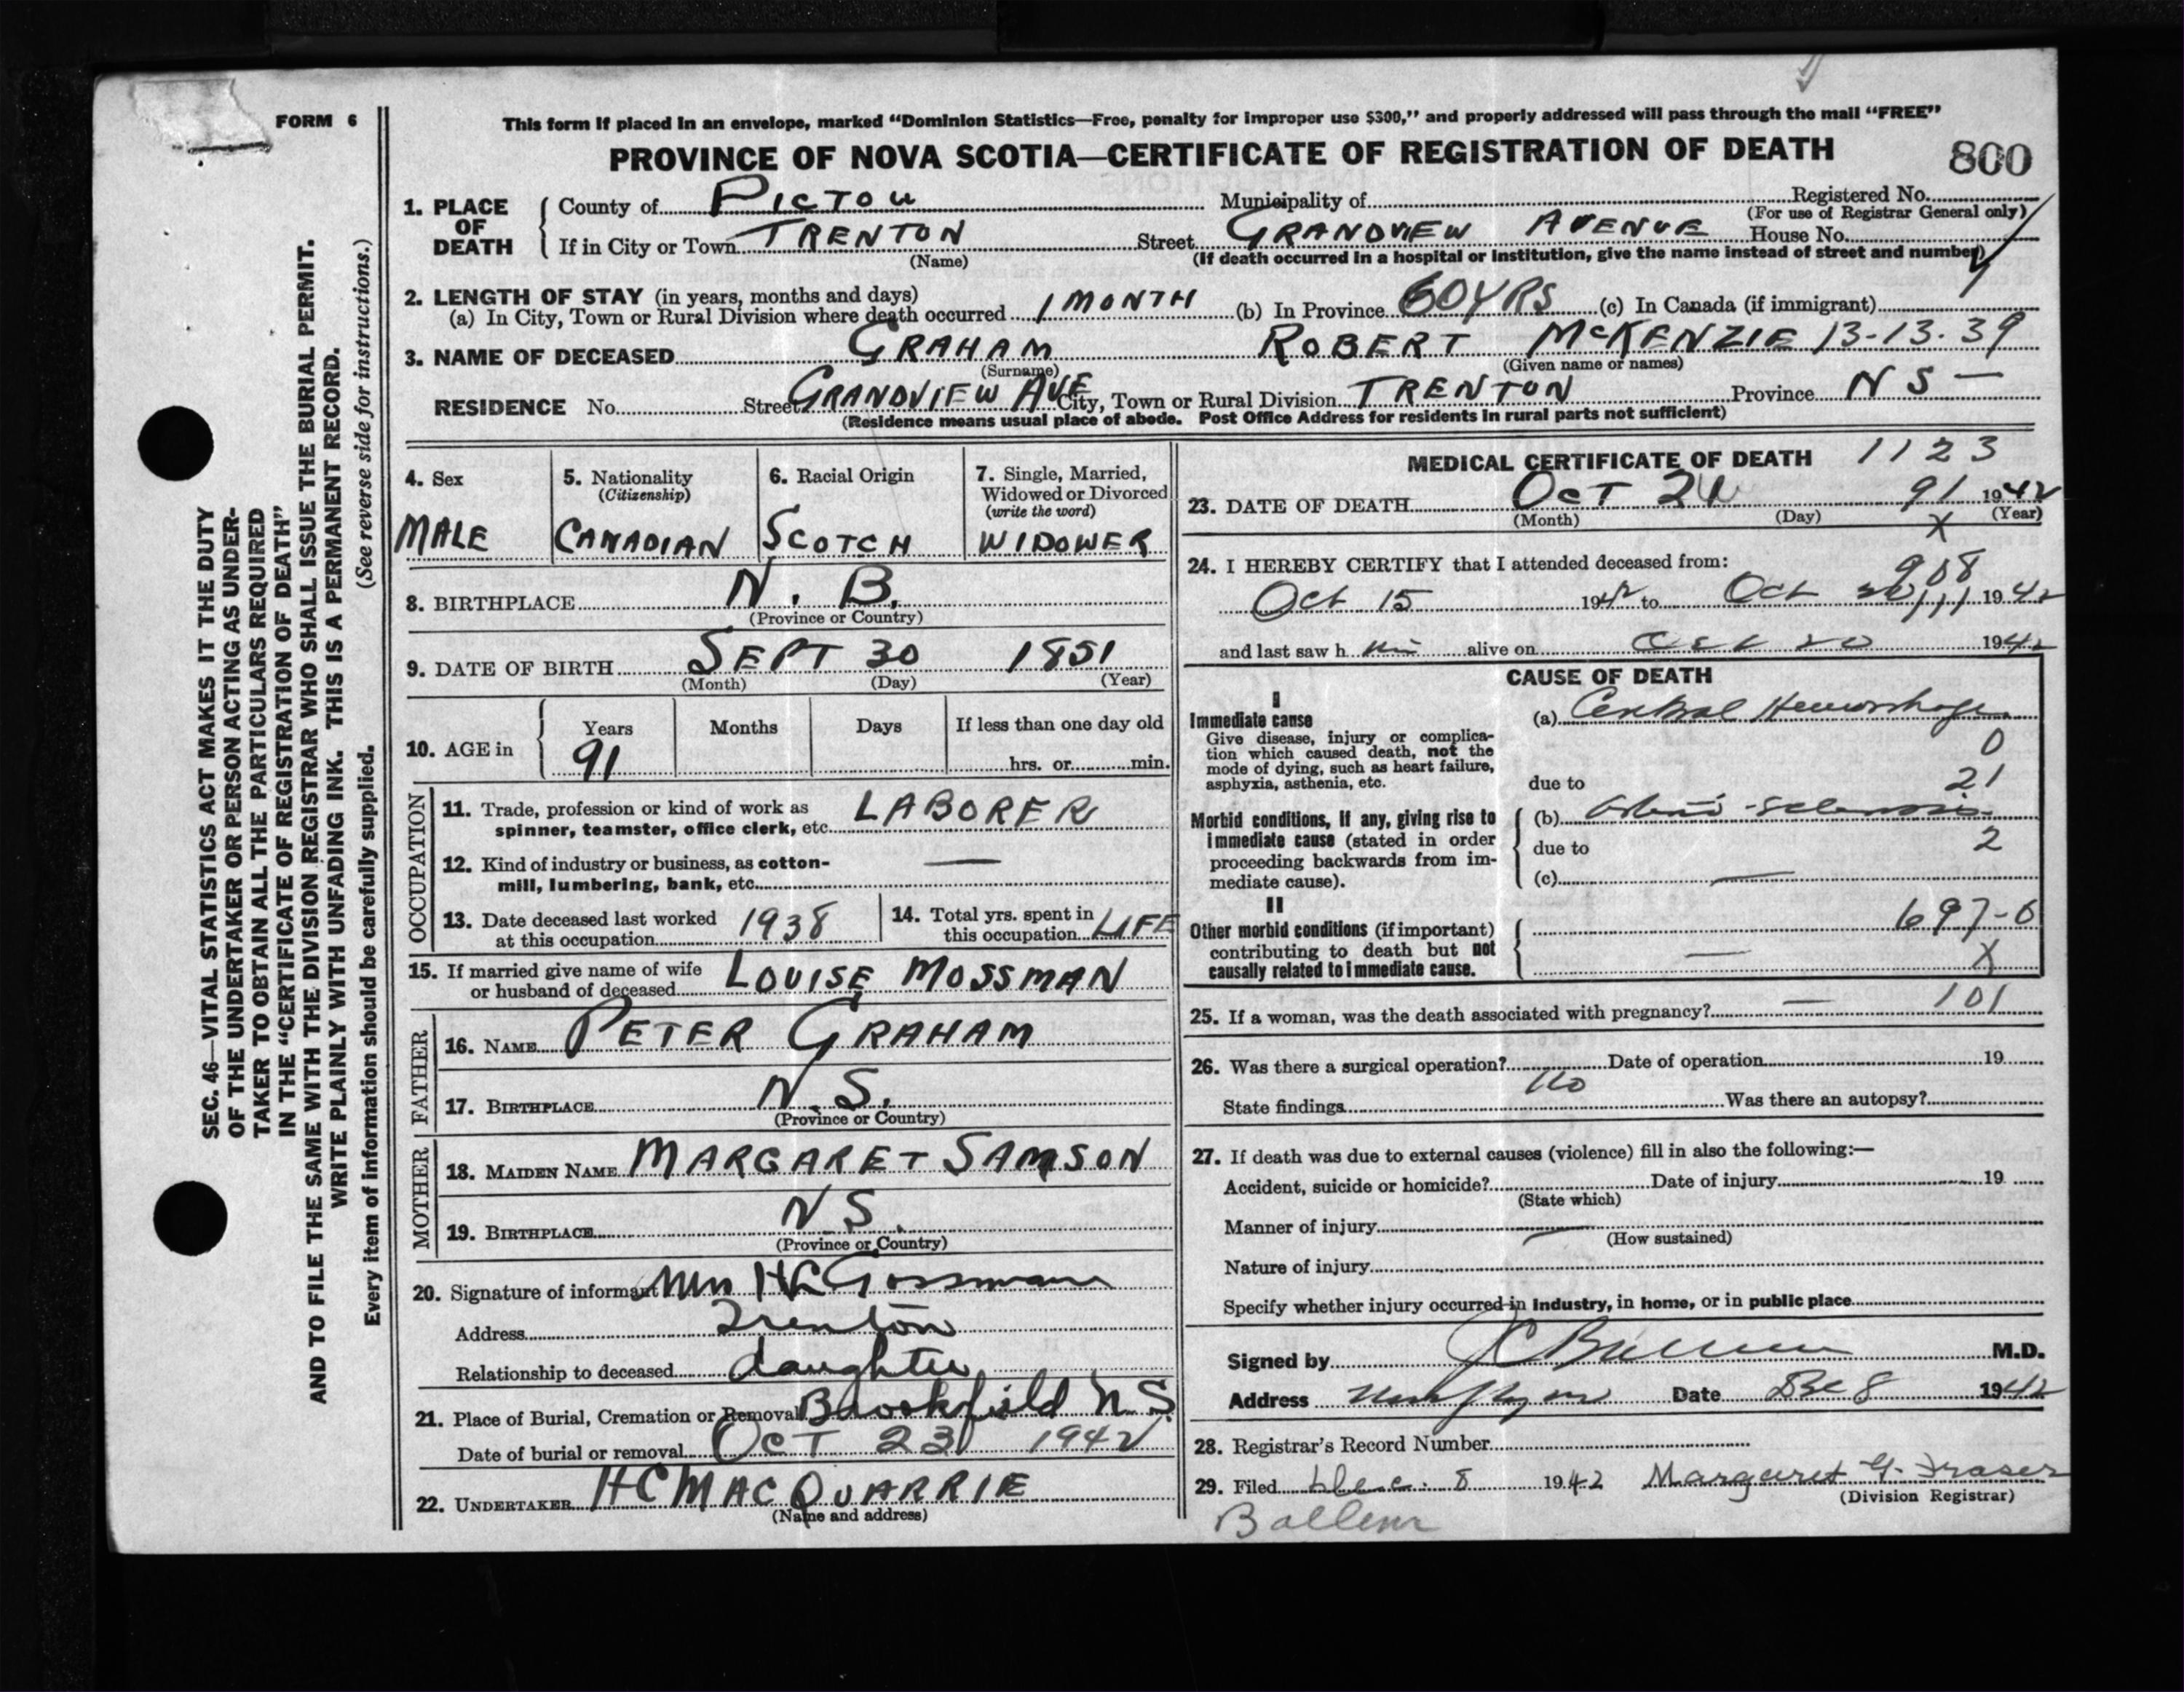 FORM 6
This form if placed in an envelope, marked “Dominion Statistics—Free, penalty for improper use $300,” and properly addressed will pass through the mail “FREE”
PROVINCE OF NOVA SCOTIA—CERTIFICATE OF REGISTRATION OF DEATH 800
SEC. 46—VITAL STATISTICS ACT MAKES IT THE DUTY
OF THE UNDERTAKER OR PERSON ACTING AS UNDER-
TAKER TO OBTAIN ALL THE PARTICULARS REQUIRED
IN THE “CERTIFICATE OF REGISTRATION OF DEATH”
AND TO FILE THE SAME WITH THE DIVISION REGISTRAR WHO SHALL ISSUE THE BURIAL PERMIT.
WRITE PLAINLY WITH UNFADING INK. THIS IS A PERMANENT RECORD.
Every item of information should be carefully supplied. (See reverse side for instructions.)
1. PLACE OF DEATH
County of PICTOU Municipality of Registered No.
(For use of Registrar General only)
If in City or Town TRENTON Street GRANDVIEW AVENUE House No.
(Name) (If death occurred in a hospital or institution, give the name instead of street and number)
2. LENGTH OF STAY (in years, months and days)
(a) In City, Town or Rural Division where death occurred 1 MONTH (b) In Province 60 YRS (c) In Canada (if immigrant)
3. NAME OF DECEASED GRAHAM ROBERT McKENZIE 13-13-39
(Surname) (Given name or names)
RESIDENCE No. Street GRANDVIEW AVE City, Town or Rural Division TRENTON Province N S —
(Residence means usual place of abode. Post Office Address for residents in rural parts not sufficient)
4. Sex
MALE
5. Nationality
(Citizenship)
CANADIAN
6. Racial Origin
SCOTCH
7. Single, Married,
Widowed or Divorced
(write the word)
WIDOWER
8. BIRTHPLACE N. B.
(Province or Country)
9. DATE OF BIRTH SEPT 30 1851
(Month) (Day) (Year)
10. AGE in Years Months Days If less than one day old
91 hrs. or min.
OCCUPATION
11. Trade, profession or kind of work as
spinner, teamster, office clerk, etc. LABORER
12. Kind of industry or business, as cotton-
mill, lumbering, bank, etc. —
13. Date deceased last worked
at this occupation 1938
14. Total yrs. spent in
this occupation LIFE
15. If married give name of wife
or husband of deceased LOUISE MOSSMAN
FATHER
16. NAME PETER GRAHAM
17. BIRTHPLACE N.S.
(Province or Country)
MOTHER
18. MAIDEN NAME MARGARET SAMSON
19. BIRTHPLACE N S.
(Province or Country)
20. Signature of informant Mrs H L Gossman
Address Trenton
Relationship to deceased daughter
21. Place of Burial, Cremation or Removal Brookfield N.S
Date of burial or removal OCT 23 1942
22. UNDERTAKER H C MAC QUARRIE
(Name and address)
MEDICAL CERTIFICATE OF DEATH 1123
23. DATE OF DEATH OCT 91 1942
(Month) (Day) (Year)
X
24. I HEREBY CERTIFY that I attended deceased from:
908
Oct 15 1942 to Oct 20 1942
and last saw h im alive on Oct 20 1942
CAUSE OF DEATH
I
Immediate cause
Give disease, injury or complica-
tion which caused death, not the
mode of dying, such as heart failure,
asphyxia, asthenia, etc.
(a) Cerebral Hemorrhage
0
due to 21
Morbid conditions, if any, giving rise to
immediate cause (stated in order
proceeding backwards from im-
mediate cause).
(b) Arterio-sclerosis
due to 2
(c) —
II
Other morbid conditions (if important)
contributing to death but not
causally related to immediate cause.
697-0
— X
25. If a woman, was the death associated with pregnancy? — 101
26. Was there a surgical operation? no Date of operation 19
State findings Was there an autopsy?
27. If death was due to external causes (violence) fill in also the following:—
Accident, suicide or homicide? Date of injury 19
(State which)
Manner of injury —
(How sustained)
Nature of injury
Specify whether injury occurred in industry, in home, or in public place
Signed by M.D.
Address Date Dec 8 1942
28. Registrar's Record Number
29. Filed Dec. 8 1942 Margaret G. Fraser
(Division Registrar)